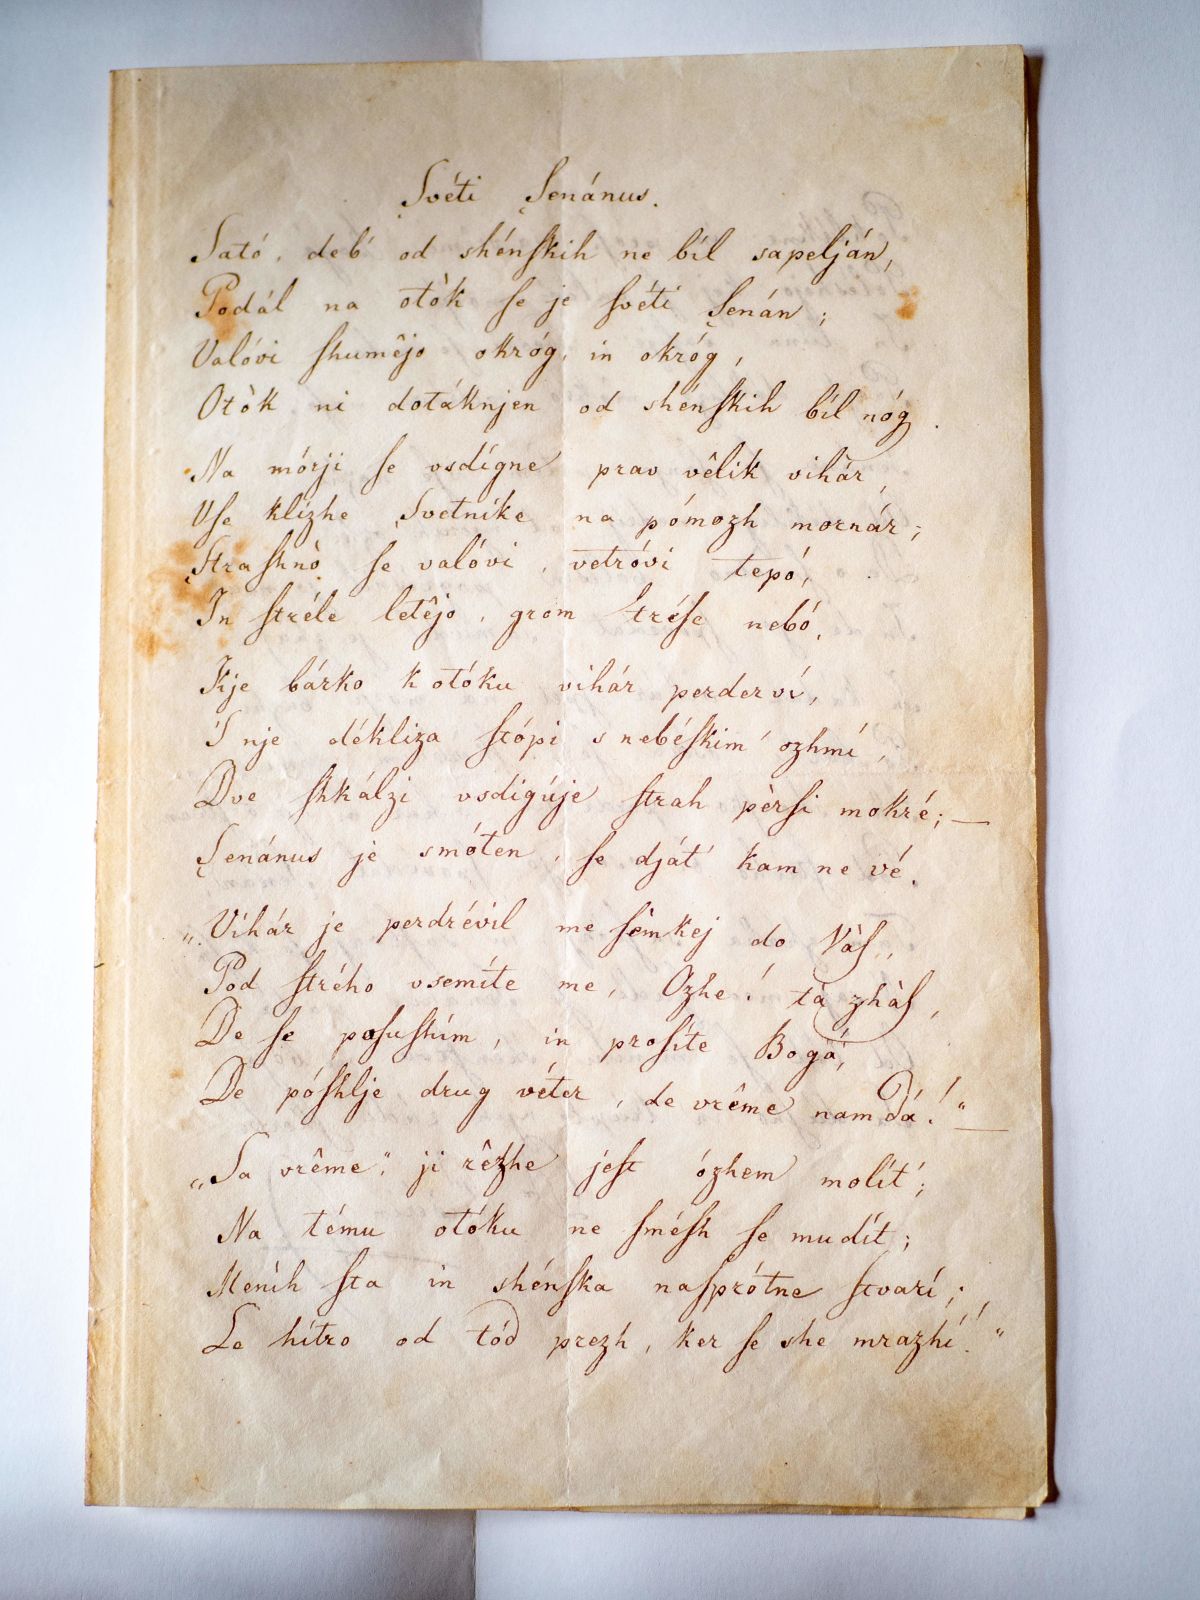 Svéti Senánus.
Sató, deb' od shénſkih ne bíl sapelján,
Podál na otòk ſe je ſvéti Senán;
Valóvi ſhumêjo okróg, in okróg,
Otòk ni dotáknjen od shénſkih bíl nóg.
Na mórji ſe vsdígne prav vêlik vihár,
Vſe klízhe Svetníke na pómozh mornár;
Straſhnò ſe valóvi, vetróvi tepó,
In ſtréle letêjo, grom tréſe nebó.
Kje bárko k otóku vihár perderví,
S' nje dékliza ſtópi s nebéſkim' ozhmí,
Dve ſhkálzi vsdigúje ſtrah pèrſi mokré; —
Senánus je smóten, ſe dját' kam ne vé.
„Vihár je perdrévil me ſèmkej do Vàſ,
Pod ſtrého vsemíte me, Ozhe! tà zhàſ,
De ſe poſuſhím, in proſíte Bogá,
De póſhlje drug véter, de vrême nam dá!“ —
„Sa vrême“, ji rêzhe jeſt ózhem molít';
Na tému otóku ne ſméſh ſe mudít;
Meníh ſta in shénſka naſprótne ſtvarí;
Le hítro od tód prezh, ker ſe she mrazhí!“